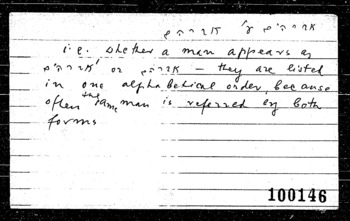 אברהים ע' אברהם
i.e. whether a man appears as
אברהים or אברהם — they are listed
in one alphabetical order, because
often the same man is referred by both
forms
100146